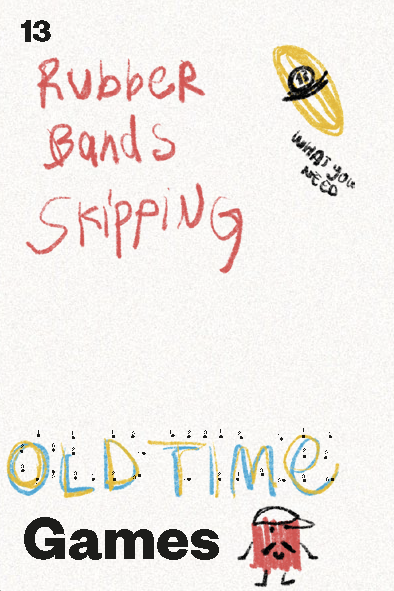 13
RubbeR
Bands
SkippiNG
WHAT YOU
NEED
OLD TIMe
Games